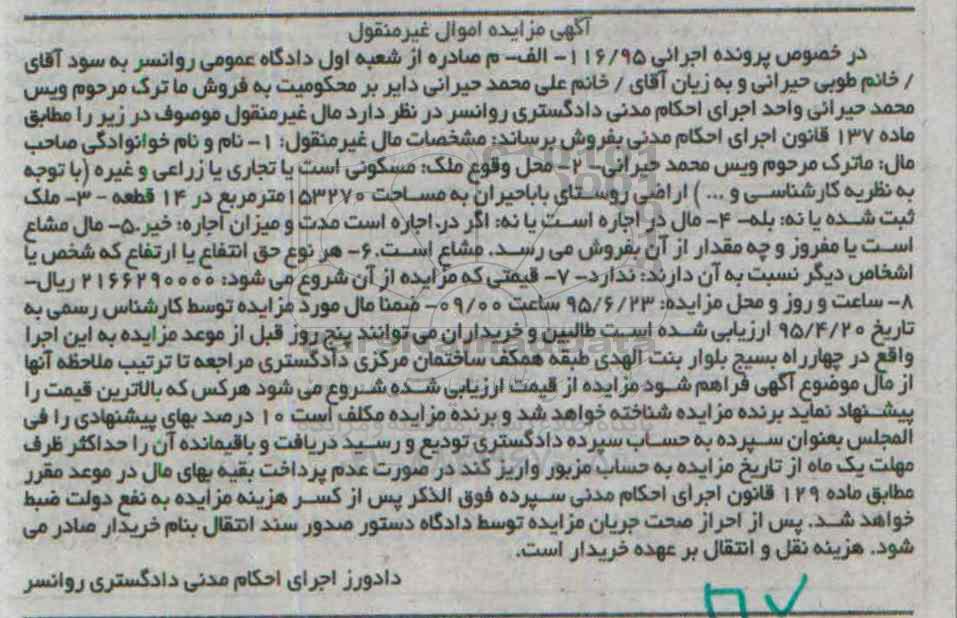 آگهی مزایده اموال غیرمنقول
در خصوص پرونده اجرائی ۱۱۶/۹۵- الف- م صادره از شعبه اول دادگاه عمومی روانسر به سود آقای
/ خانم طوبی حیرانی و به زیان آقای / خانم علی محمد حیرانی دایر بر محکومیت به فروش ما ترک مرحوم ویس
محمد حیرانی واحد اجرای احکام مدنی دادگستری روانسر در نظر دارد مال غیرمنقول موصوف در زیر را مطابق
ماده ۱۳۷ قانون اجرای احکام مدنی بفروش برساند: مشخصات مال غیرمنقول: ۱- نام و نام خوانوادگی صاحب
مال: ماترک مرحوم ویس محمد حیرانی- ۲- محل وقوع ملک: مسکونی است یا تجاری یا زراعی و غیره (با توجه
به نظریه کارشناسی و ... ) اراضی روستای باباحیران به مساحت ۱۵۳۲۷۰مترمربع در ۱۴ قطعه - ۳- ملک
ثبت شده یا نه: بله- ۴- مال در اجاره است یا نه: اگر در.اجاره است مدت و میزان اجاره: خیر.۵- مال مشاع
است یا مفروز و چه مقدار از آن بفروش می رسد. مشاع است.۶- هر نوع حق انتفاع یا ارتفاع که شخص یا
اشخاص دیگر نسبت به آن دارند: ندارد- ۷- قیمتی که مزایده از آن شروع می شود: ۲۱۶۶۲۹۰۰۰۰ ریال-
۸- ساعت و روز و محل مزایده: ۹۵/۶/۲۳ ساعت ۰۹/۰۰- ضمنا مال مورد مزایده توسط کارشناس رسمی به
تاریخ ۹۵/۴/۲۰ ارزیابی شده است طالبین و خریداران می توانند پنج روز قبل از موعد مزایده به این اجرا
واقع در چهارراه بسیج بلوار بنت الهدی طبقه همکف ساختمان مرکزی دادگستری مراجعه تا ترتیب ملاحظه آنها
از مال موضوع آگهی فراهم شود مزایده از قیمت ارزیابی شده شروع می شود هرکس که بالاترین قیمت را
پیشنهاد نماید برنده مزایده شناخته خواهد شد و برنده مزایده مکلف است ۱۰ درصد بهای پیشنهادی را فی
المجلس بعنوان سپرده به حساب سپرده دادگستری تودیع و رسید دریافت و باقیمانده آن را حداکثر ظرف
مهلت یک ماه از تاریخ مزایده به حساب مزبور واریز کند در صورت عدم پرداخت بقیه بهای مال در موعد مقرر
مطابق ماده ۱۲۹ قانون اجرای احکام مدنی سپرده فوق الذکر پس از کسر هزینه مزایده به نفع دولت ضبط
خواهد شد. پس از احراز صحت جریان مزایده توسط دادگاه دستور صدور سند انتقال بنام خریدار صادر می
شود. هزینه نقل و انتقال بر عهده خریدار است.
دادورز اجرای احکام مدنی دادگستری روانسر